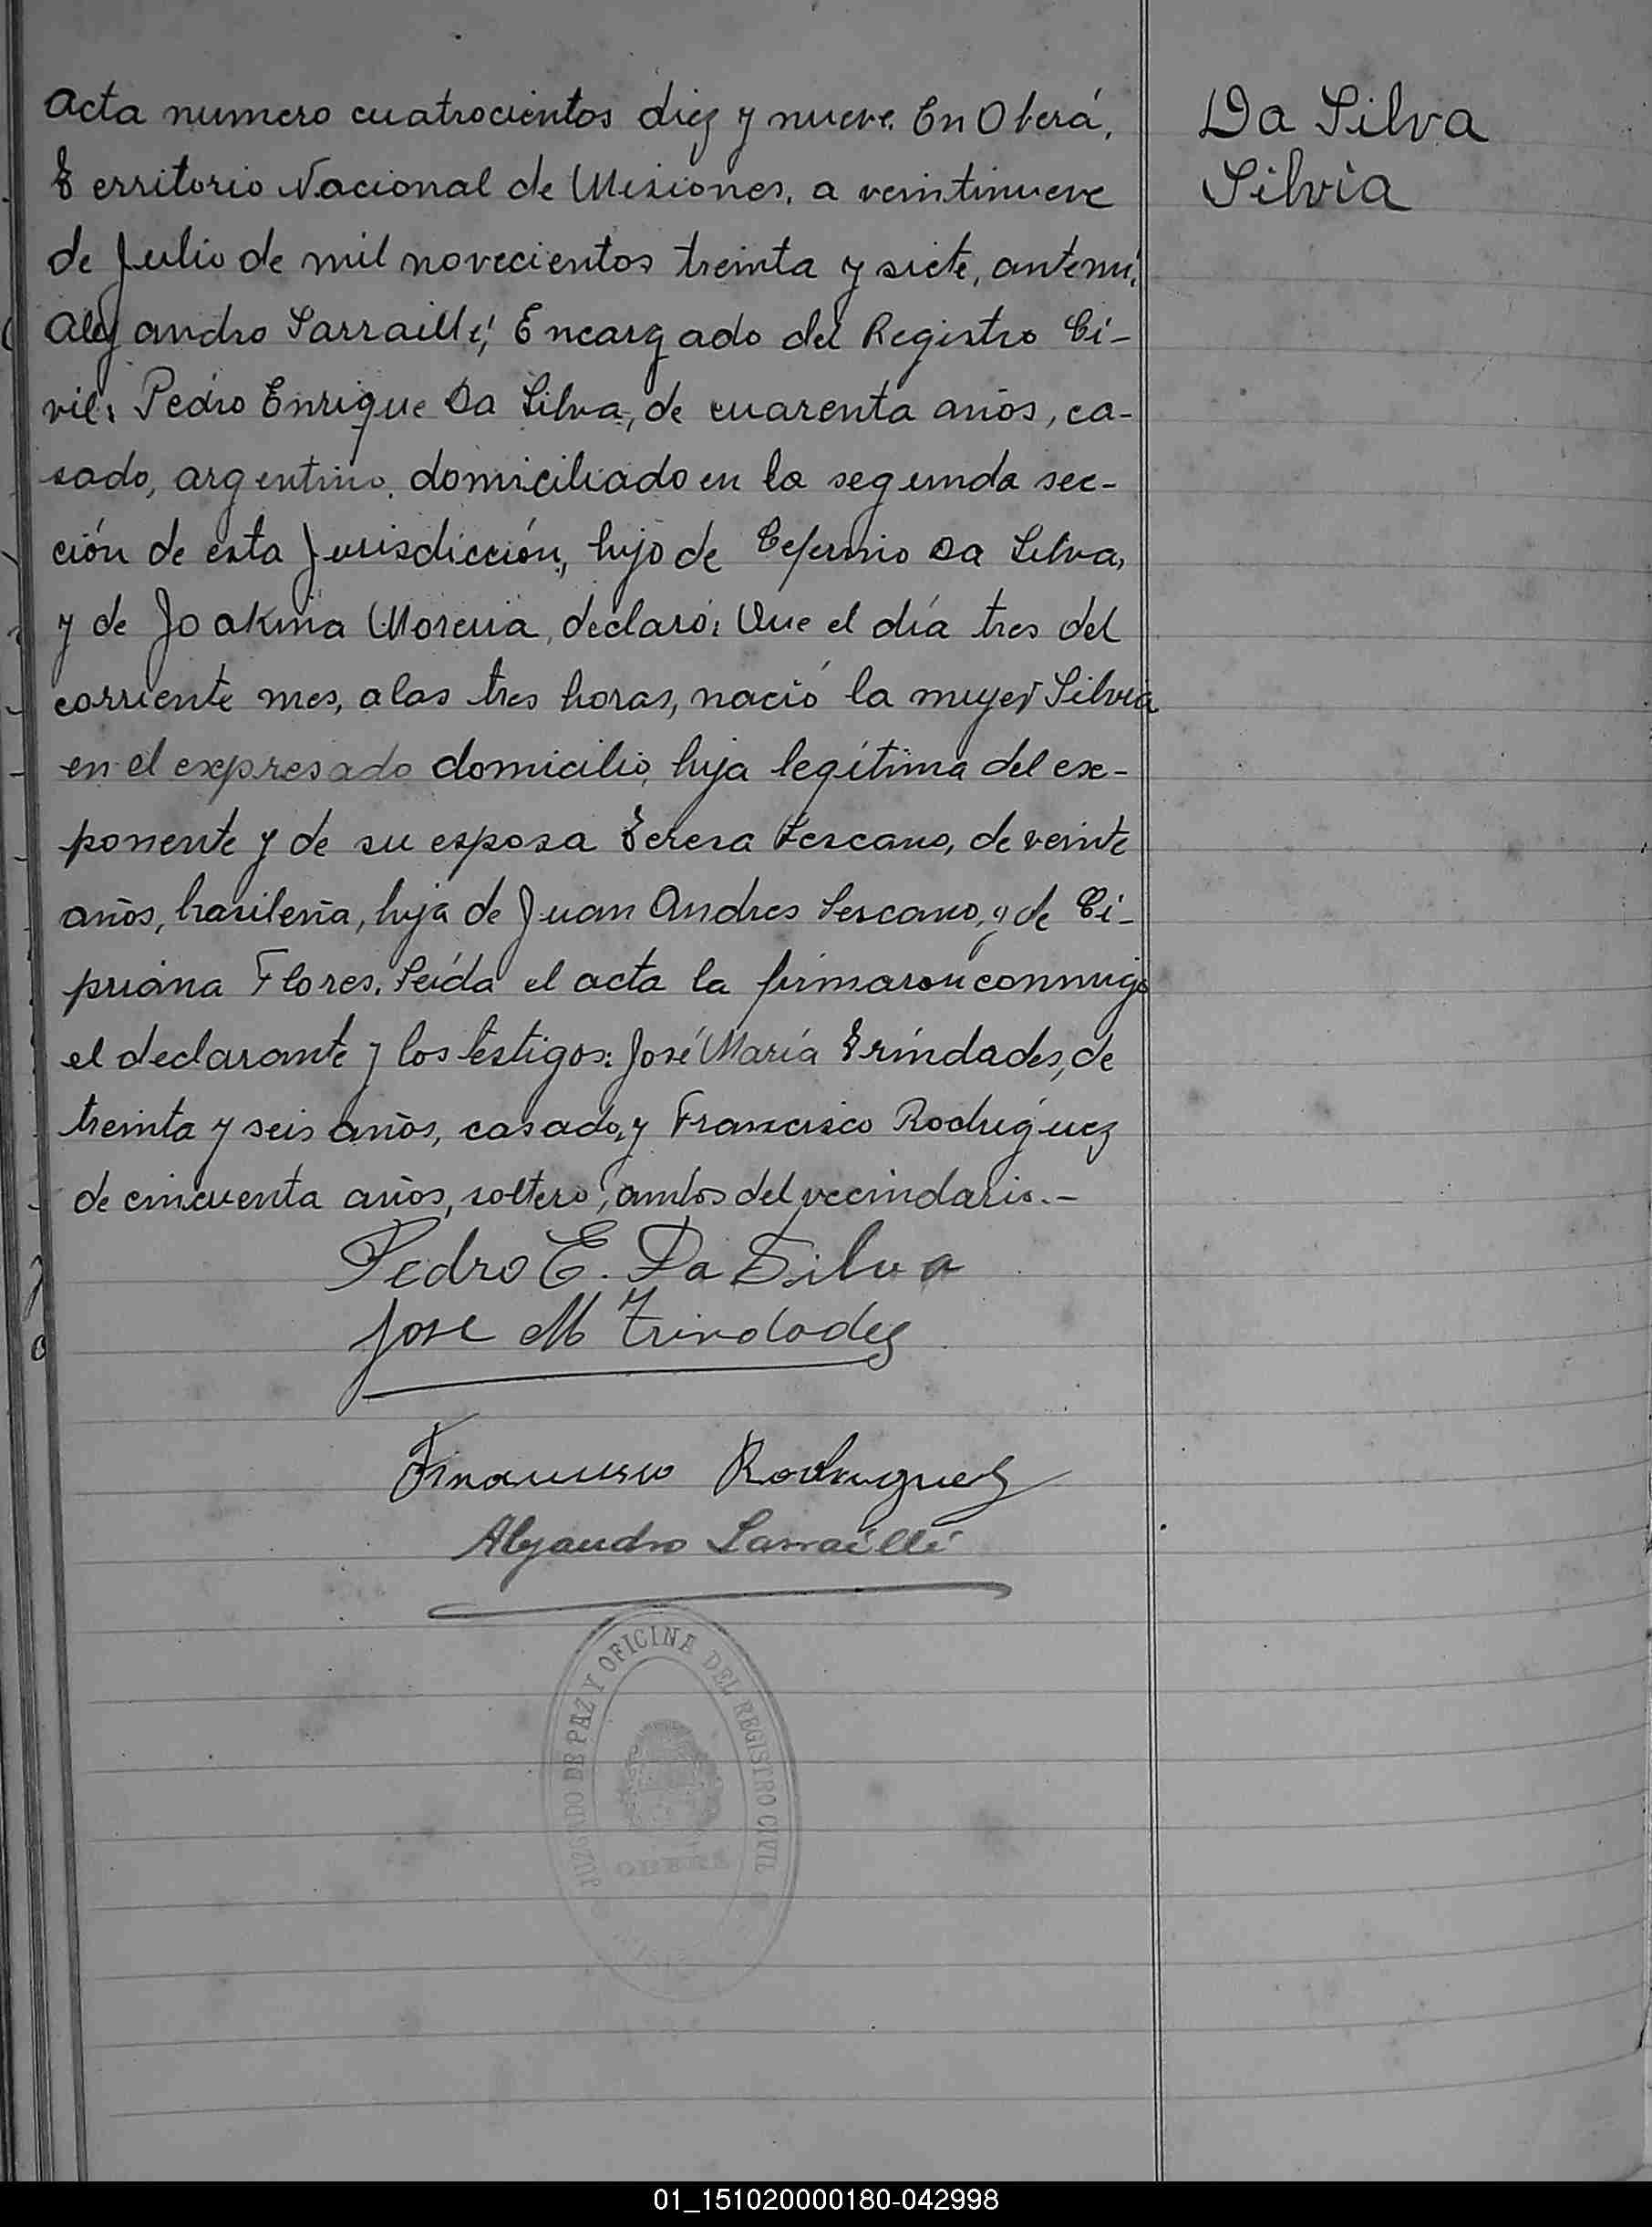 Acta numero cuatrocientos diez y nueve. En Oberá,
Territorio Nacional de Misiones, a veintinueve
de Julio de mil novecientos treinta y siete, ante mi,
Alejandro Sarraillé, Encargado del Registro Ci-
vil: Pedro Enrique Da Silva, de cuarenta años, ca-
sado, argentino, domiciliado en la segunda sec-
ción de esta Jurisdicción, hijo de Ceferino Da Silva,
y de Joakina Moreira, declaró: Que el día tres del
corriente mes, a las tres horas, nació la mujer Silvia
en el expresado domicilio, hija legítima del ex-
ponente y de su esposa Teresa Lescano, de veinte
años, brasileña, hija de Juan Andres Lescano, y de Ci-
priana Flores. Leída el acta la firmaron conmigo
el declarante y los testigos: José María Trindades, de
treinta y seis años, casado, y Francisco Rodriguez
de cincuenta años, soltero, ambos del vecindario.-
Pedro E. Da Silva
Jose M Trindades
Francisco Rodriguez
Alejandro Sarraillé
JUZGADO DE PAZ Y OFICINA DEL REGISTRO CIVIL
OBERÁ
Da Silva
Silvia
01_151020000180-042998